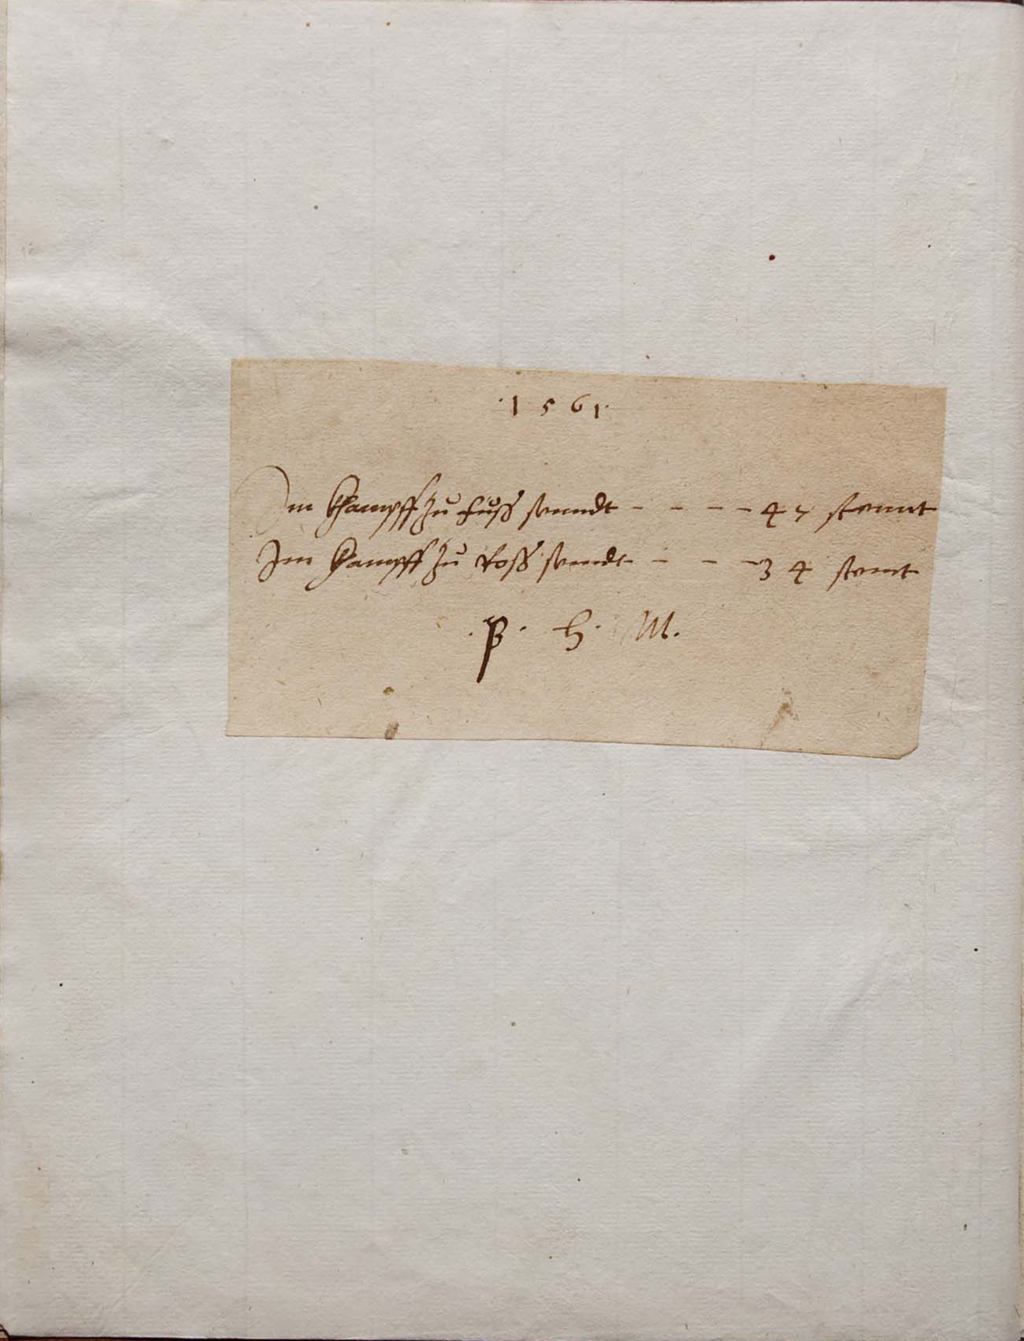 ·1561·
Im Khampff zu fuss senndt - - - - 47 stennt
Im Kampff zu Ross sendt - - - 34 stent
·P· H· M·